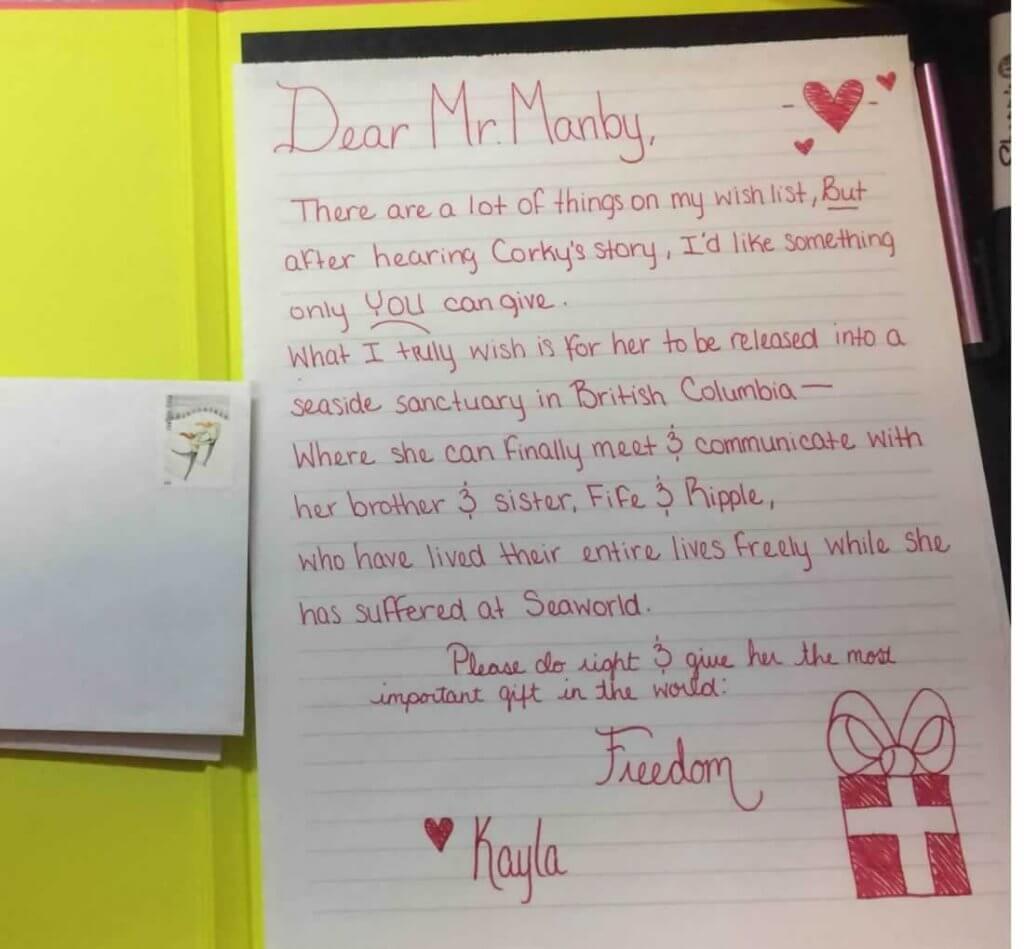 Dear Mr. Manby,
There are a lot of things on my wish list, But
after hearing Corky's story, I'd like something
only YOU can give.
What I truly wish is for her to be released into a
seaside sanctuary in British Columbia —
Where she can finally meet & communicate with
her brother & sister, Fife & Ripple,
who have lived their entire lives freely while she
has suffered at Seaworld.
Please do right & give her the most
important gift in the world:
Freedom
Kayla